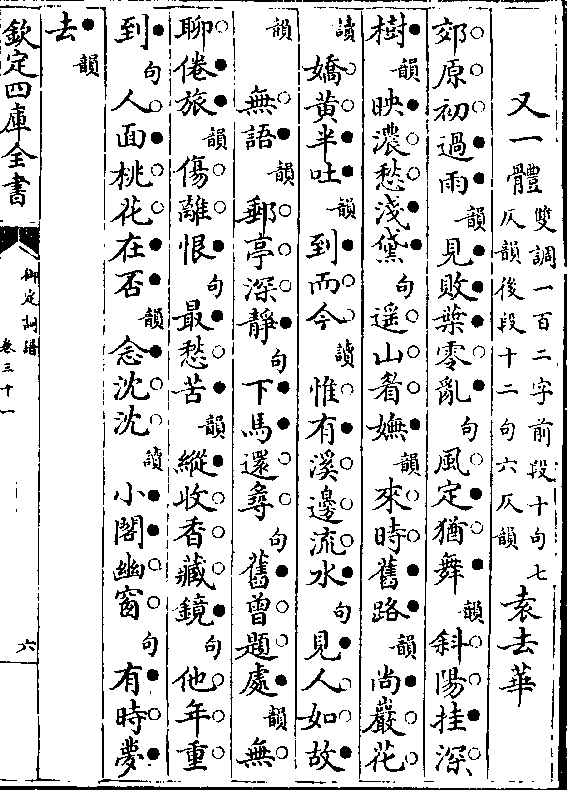 又一體 雙調一百二字前段十句七仄韻後段十二句六仄韻 袁去華
郊原初過雨韻見敗葉零亂句風定猶舞韻斜陽挂深
樹韻映濃愁淺黛句遥山眉嫵韻來時舊路韻尚巖花
讀嬌黄半吐韻到而今讀惟有溪邊流水句見人如故
韻 無語韻郵亭深靜句下馬還尋句舊曾題處韻無
聊倦旅韻傷離恨句最愁苦韻縱收香藏鏡句他年重
到句人面桃花在否韻念沈沈讀小閣幽窗句有時夢
去韻
欽定四庫全書
御定詞譜
卷三十一
六